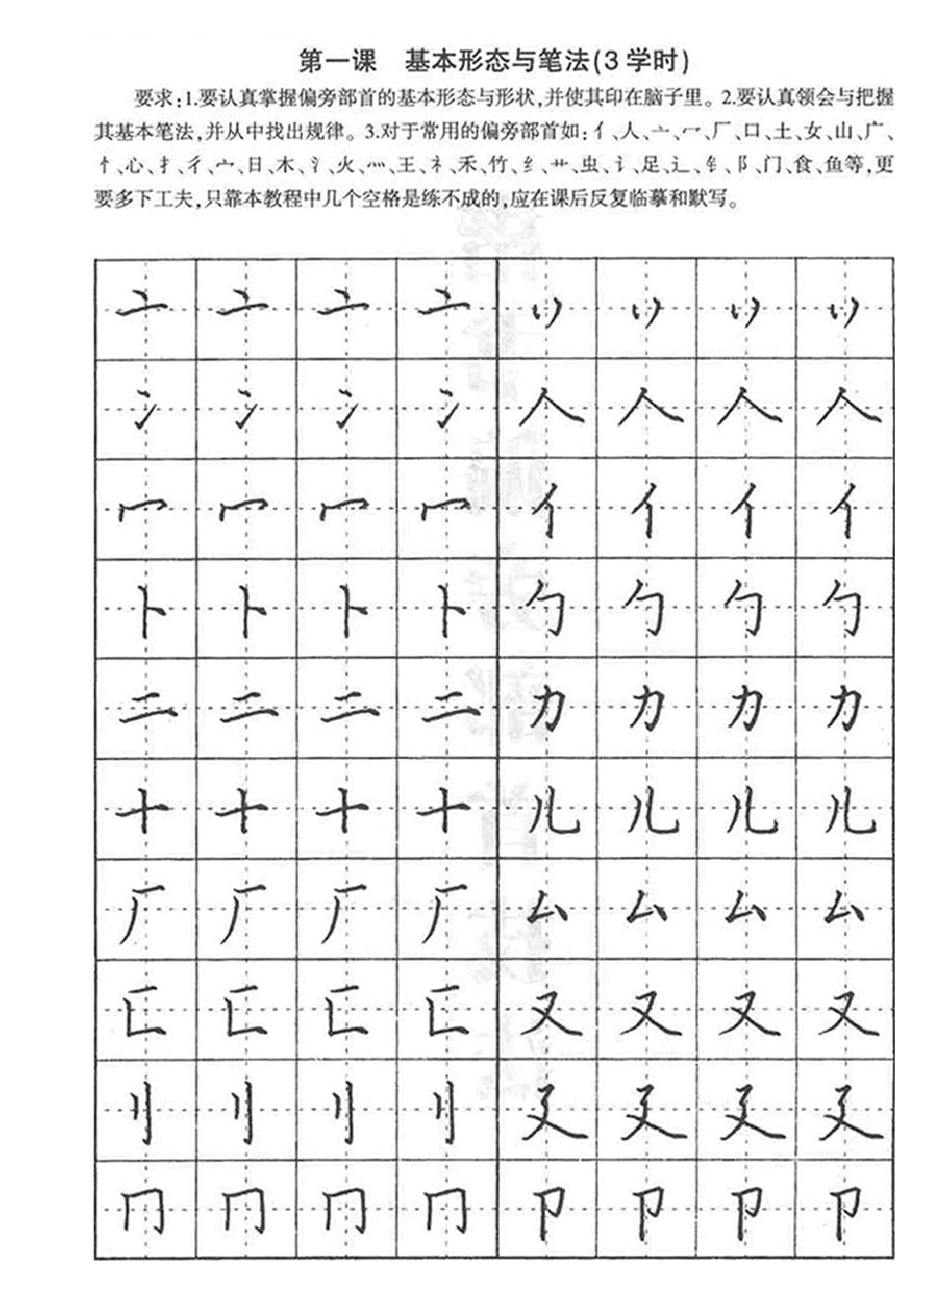 第一课 基本形态与笔法(3学时)
要求:1.要认真掌握偏旁部首的基本形态与形状,并使其印在脑子里。2.要认真领会与把握
其基本笔法,并从中找出规律。3.对于常用的偏旁部首如:亻、人、亠、冖、厂、口、土、女、山、广、
忄、心、扌、彳、宀、日、木、氵、火、灬、王、礻、禾、竹、纟、艹、虫、讠、足、辶、钅、阝、门、食、鱼等,更
要多下工夫,只靠本教程中几个空格是练不成的,应在课后反复临摹和默写。
亠 亠 亠 亠 丷 丷 丷 丷
冫 冫 冫 冫 人 人 人 人
冖 冖 冖 冖 亻 亻 亻 亻
卜 卜 卜 卜 勹 勹 勹 勹
二 二 二 二 力 力 力 力
十 十 十 十 儿 儿 儿 儿
厂 厂 厂 厂 厶 厶 厶 厶
匚 匚 匚 匚 又 又 又 又
刂 刂 刂 刂 廴 廴 廴 廴
冂 冂 冂 冂 卩 卩 卩 卩